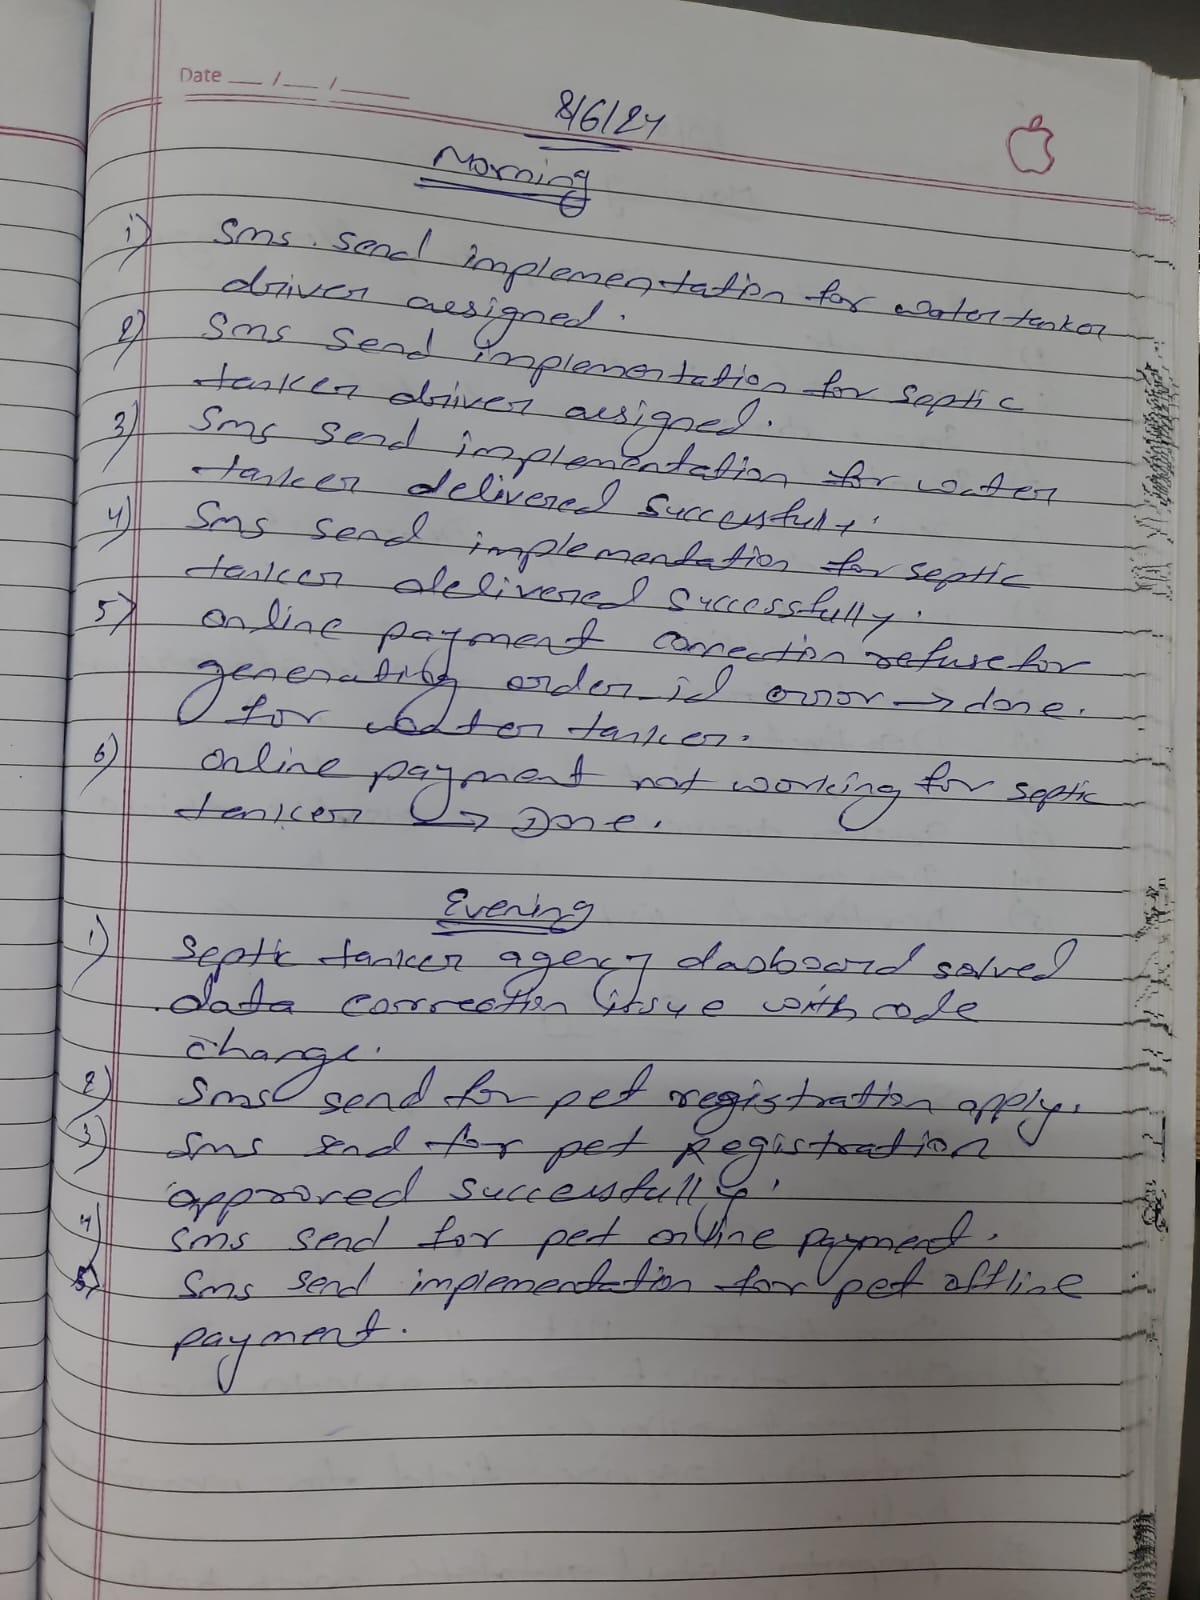 Date __/__/____
8/6/24
Morning
1) Sms send implementation for water tanker
driver assigned.
2) Sms send implementation for septic
tanker driver assigned.
3) Sms send implementation for water
tanker delivered successfully.
4) Sms send implementation for septic
tanker delivered successfully.
5) online payment connection refuse for
generating order_id error → done.
for water tanker.
6) online payment not working for septic
tanker → Done.
Evening
1) septic tanker agency dasboard solved
data correction issue with code
change.
2) Sms send for pet registration apply.
3) Sms send for pet Registration
approved successfully.
4) sms send for pet online payment.
5) Sms send implementation for pet offline
payment.